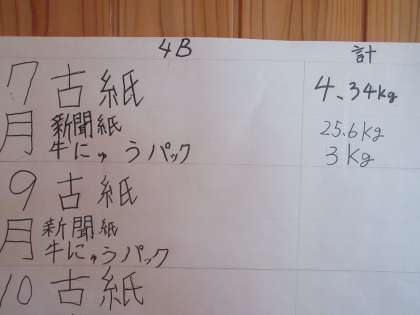 4B 計
7月 古紙 4.34kg
新聞紙 25.6kg
牛にゅうパック 3kg
9月 古紙
新聞紙
牛にゅうパック
10 古紙